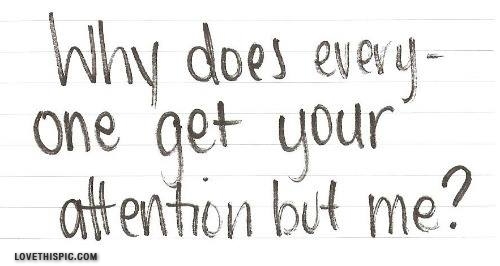 Why does every-
one get your
attention but me?
LOVETHISPIC.COM